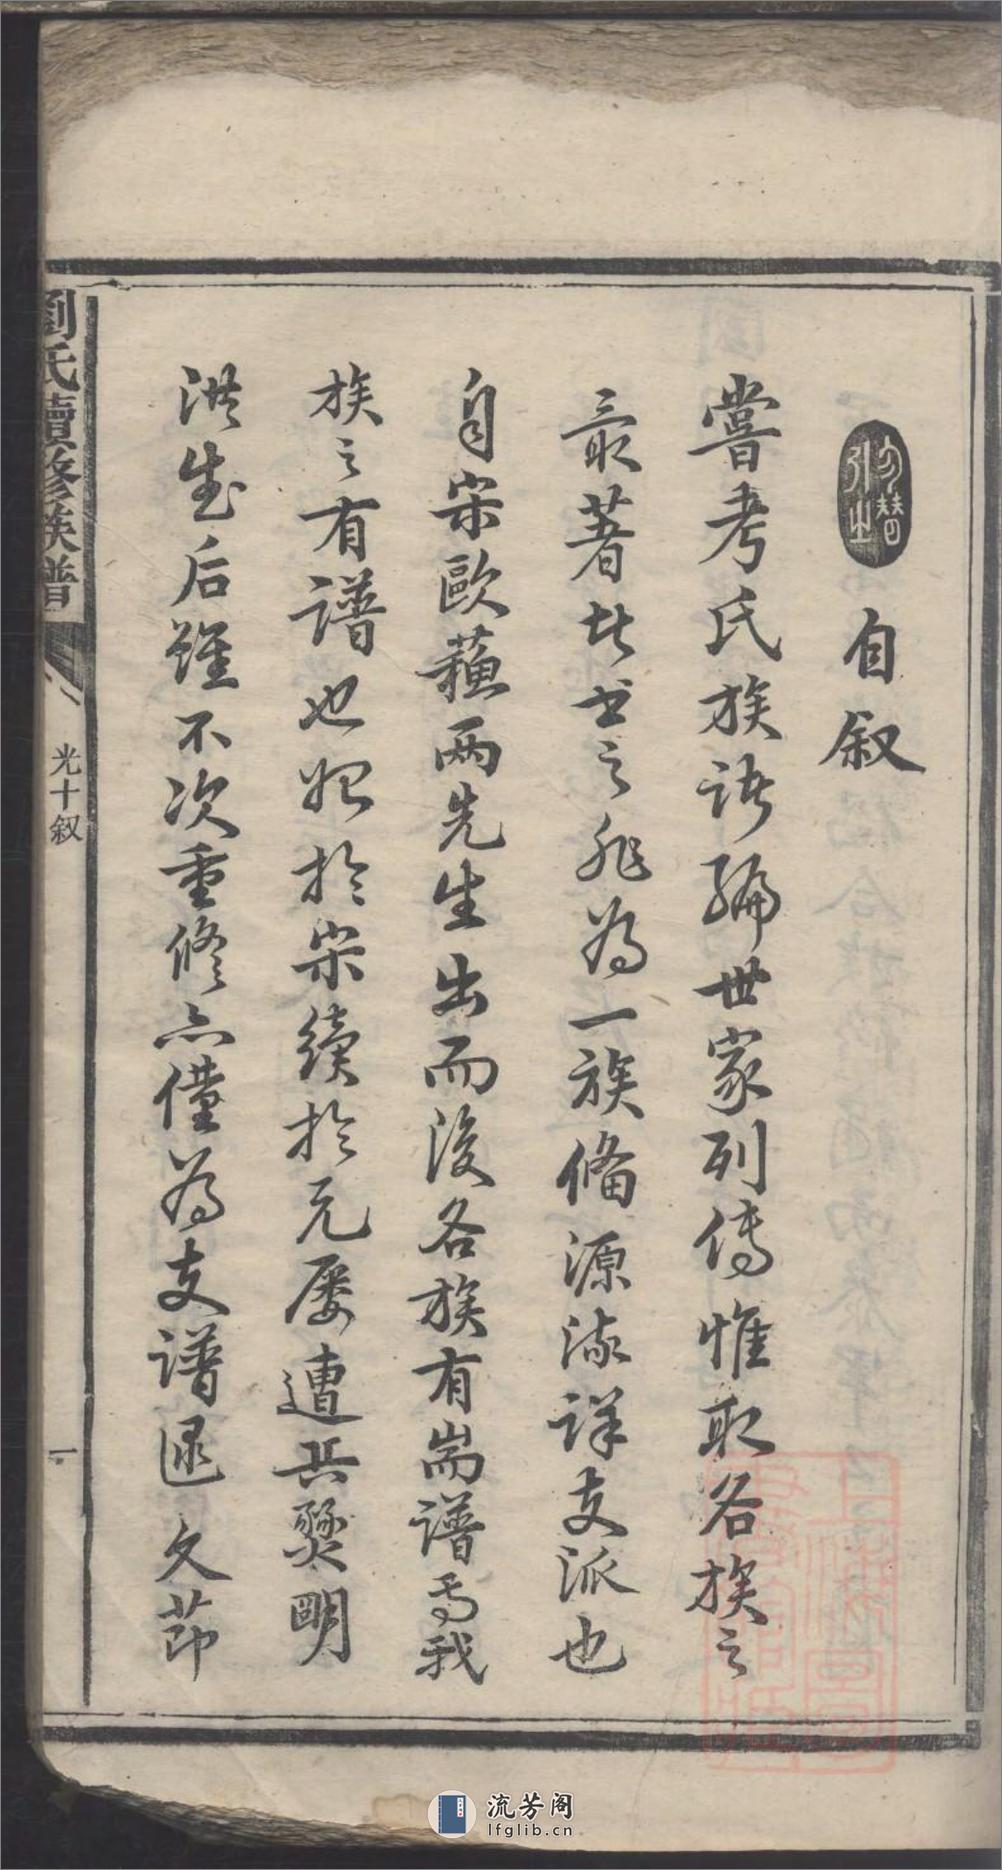 自叙
嘗考氏族诸編世家列傳惟取各族之
最著者书之非為一族備源流詳支派也
自宋歐蘓两先生出而後各族有耑譜焉我
族之有譜也始於宋續於元屡遭兵燹明
洪武后雖不次重修亦僅為支譜逮文節
劉氏續修族譜
光十叙
一
流芳阁
lfglib.cn